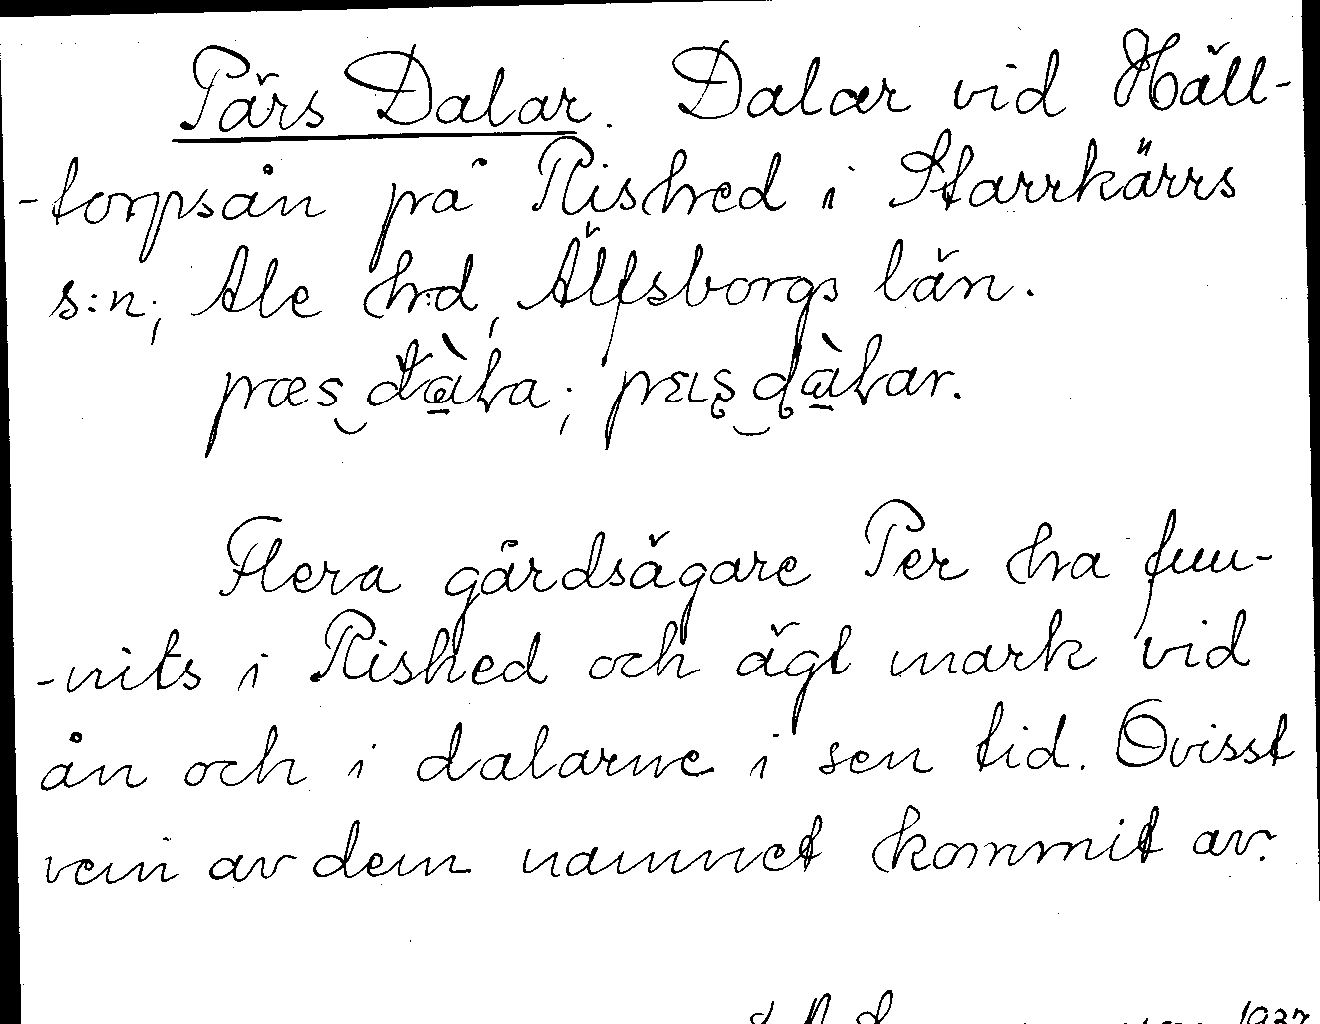 Pärs Dalar. Dalar vid Häll-
-torpsån på Rished i Starrkärrs
s:n, Ale hrd, Älfsborgs län.
Flera gårdsägare Per ha fun-
-nits i Rished och ägt mark vid
ån och i dalarne i sen tid. Ovisst
vem av dem namnet kommit av.
1937